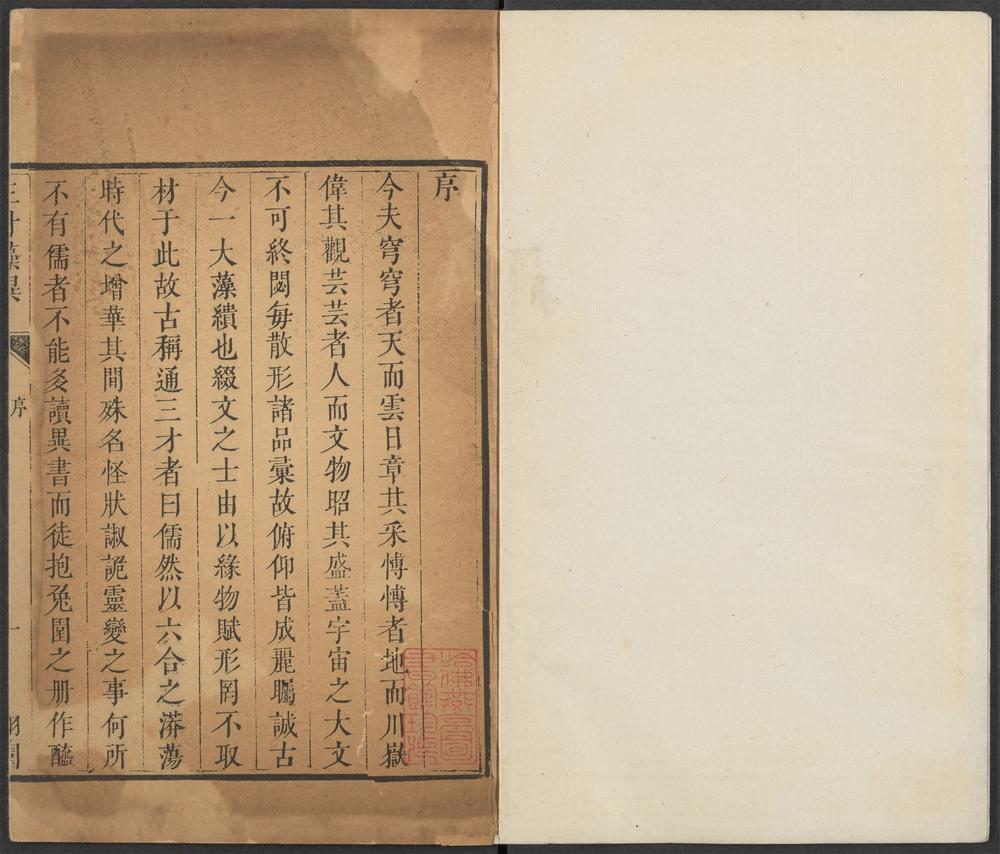 序
今夫穹穹者天而雲日章其采慱慱者地而川嶽
偉其觀芸芸者人而文物昭其盛葢宇宙之大文
不可終閟每散形諸品彙故俯仰皆成麗矚誠古
今一大藻繢也綴文之士由以緣物賦形罔不取
材于此故古稱通三才者曰儒然以六合之漭蕩
時代之增華其間殊名怪狀諔詭靈變之事何所
不有儒者不能多讀異書而徒抱兔園之册作醯
三才藻異
序
一
哈佛燕京圖書館珍藏